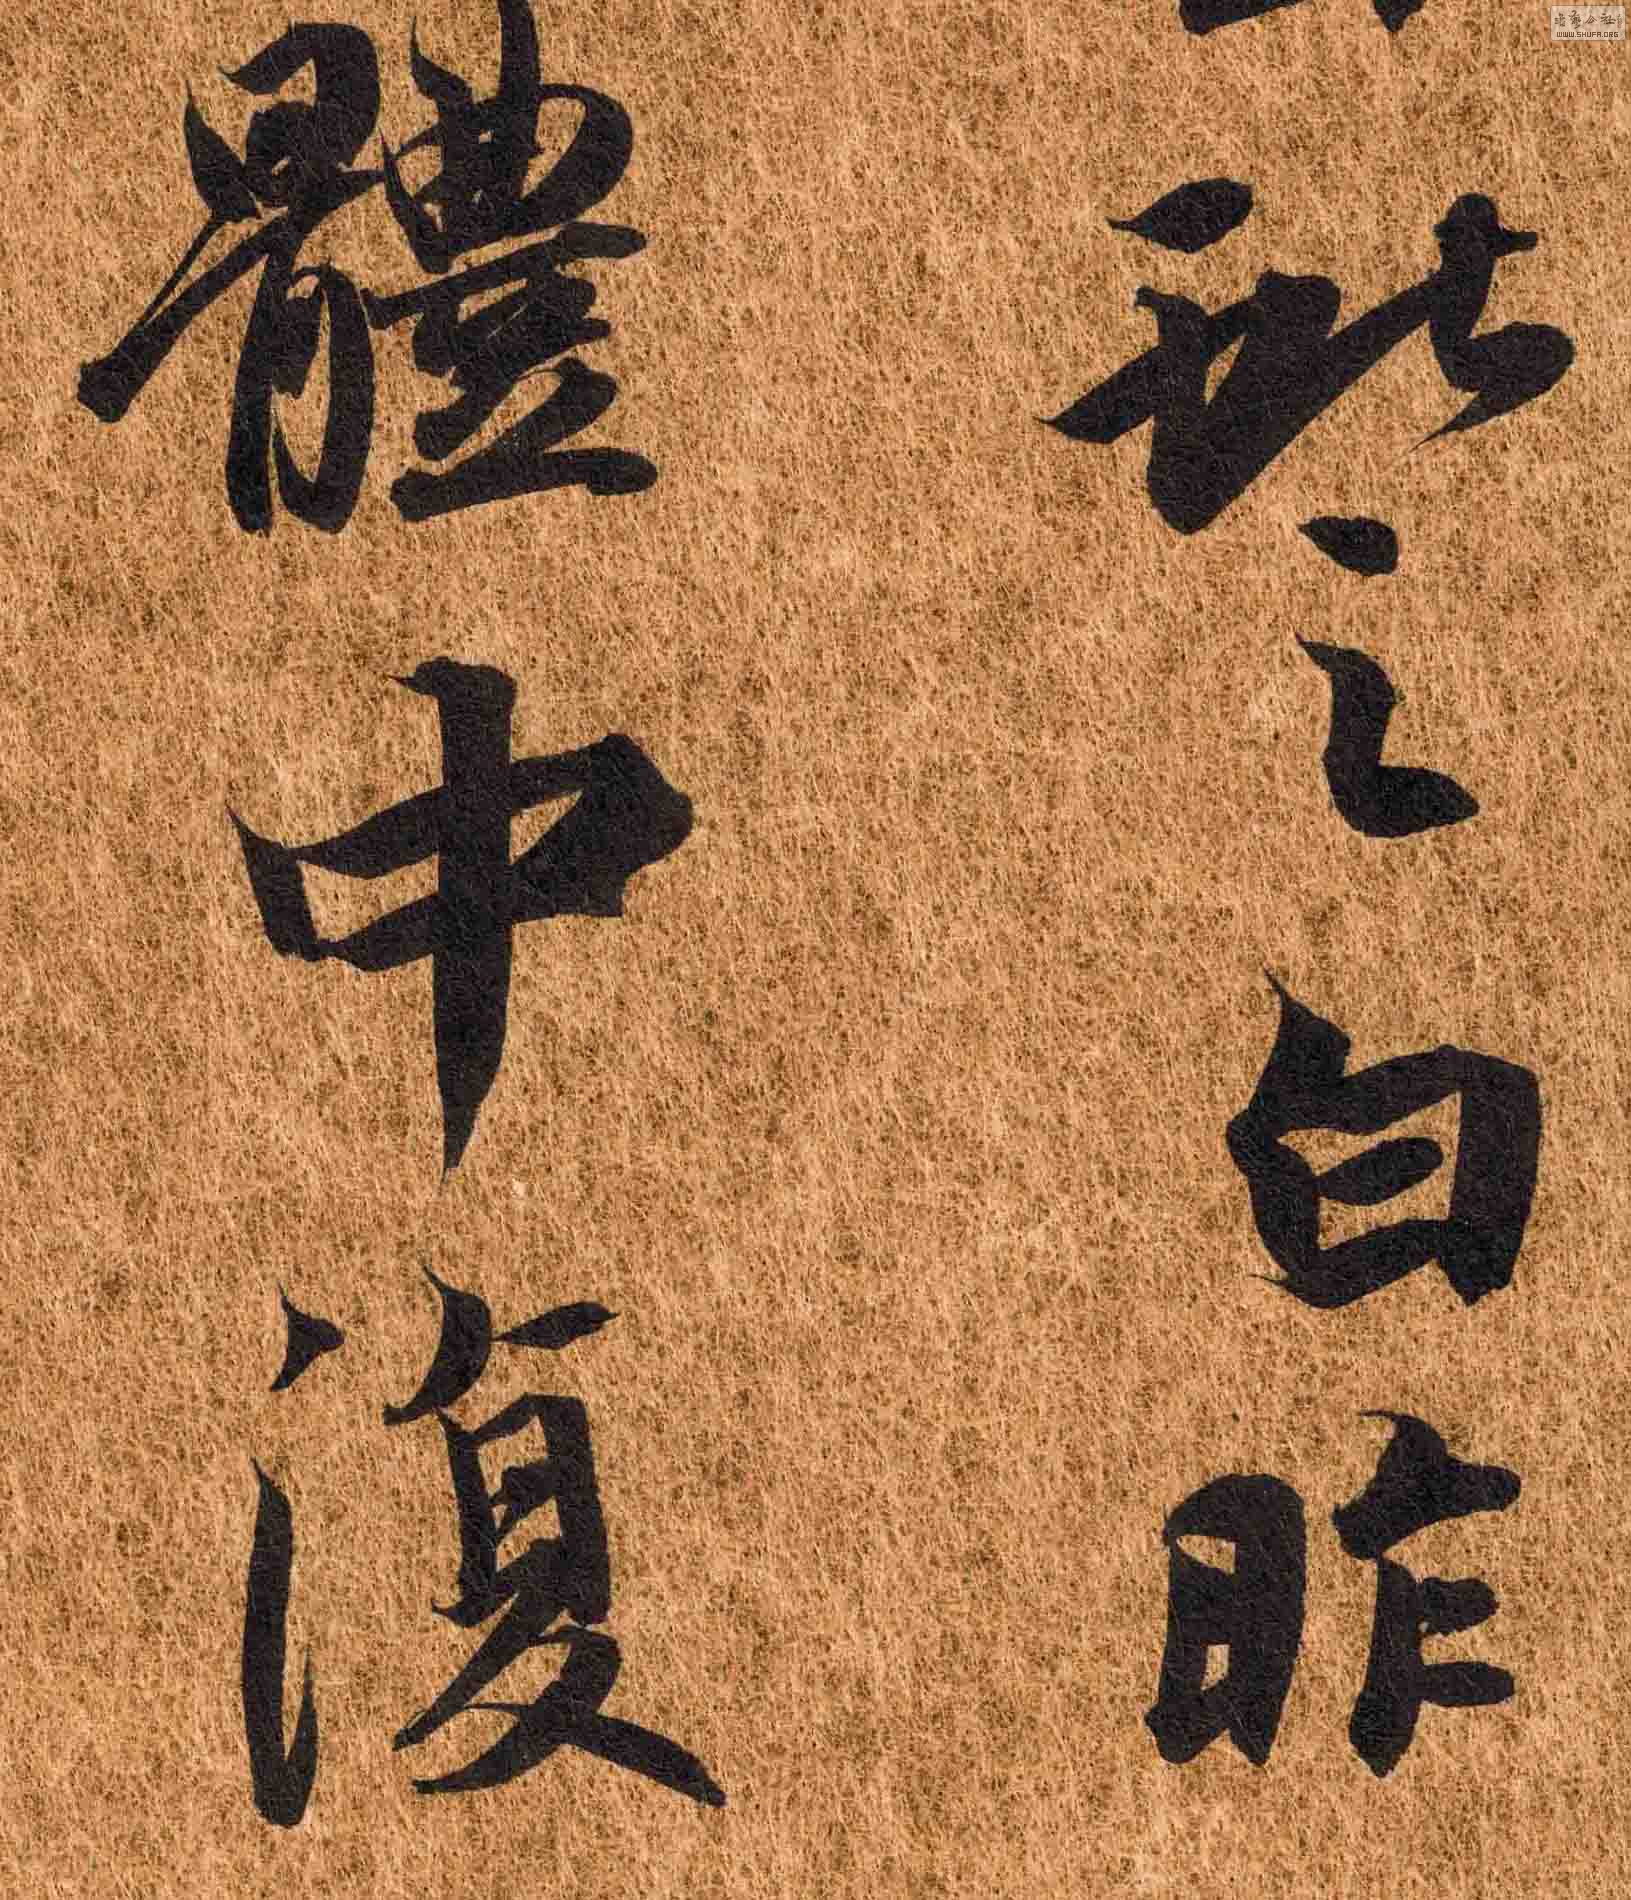 之白昨
體中復
書藝公社
WWW.SHUFA.ORG